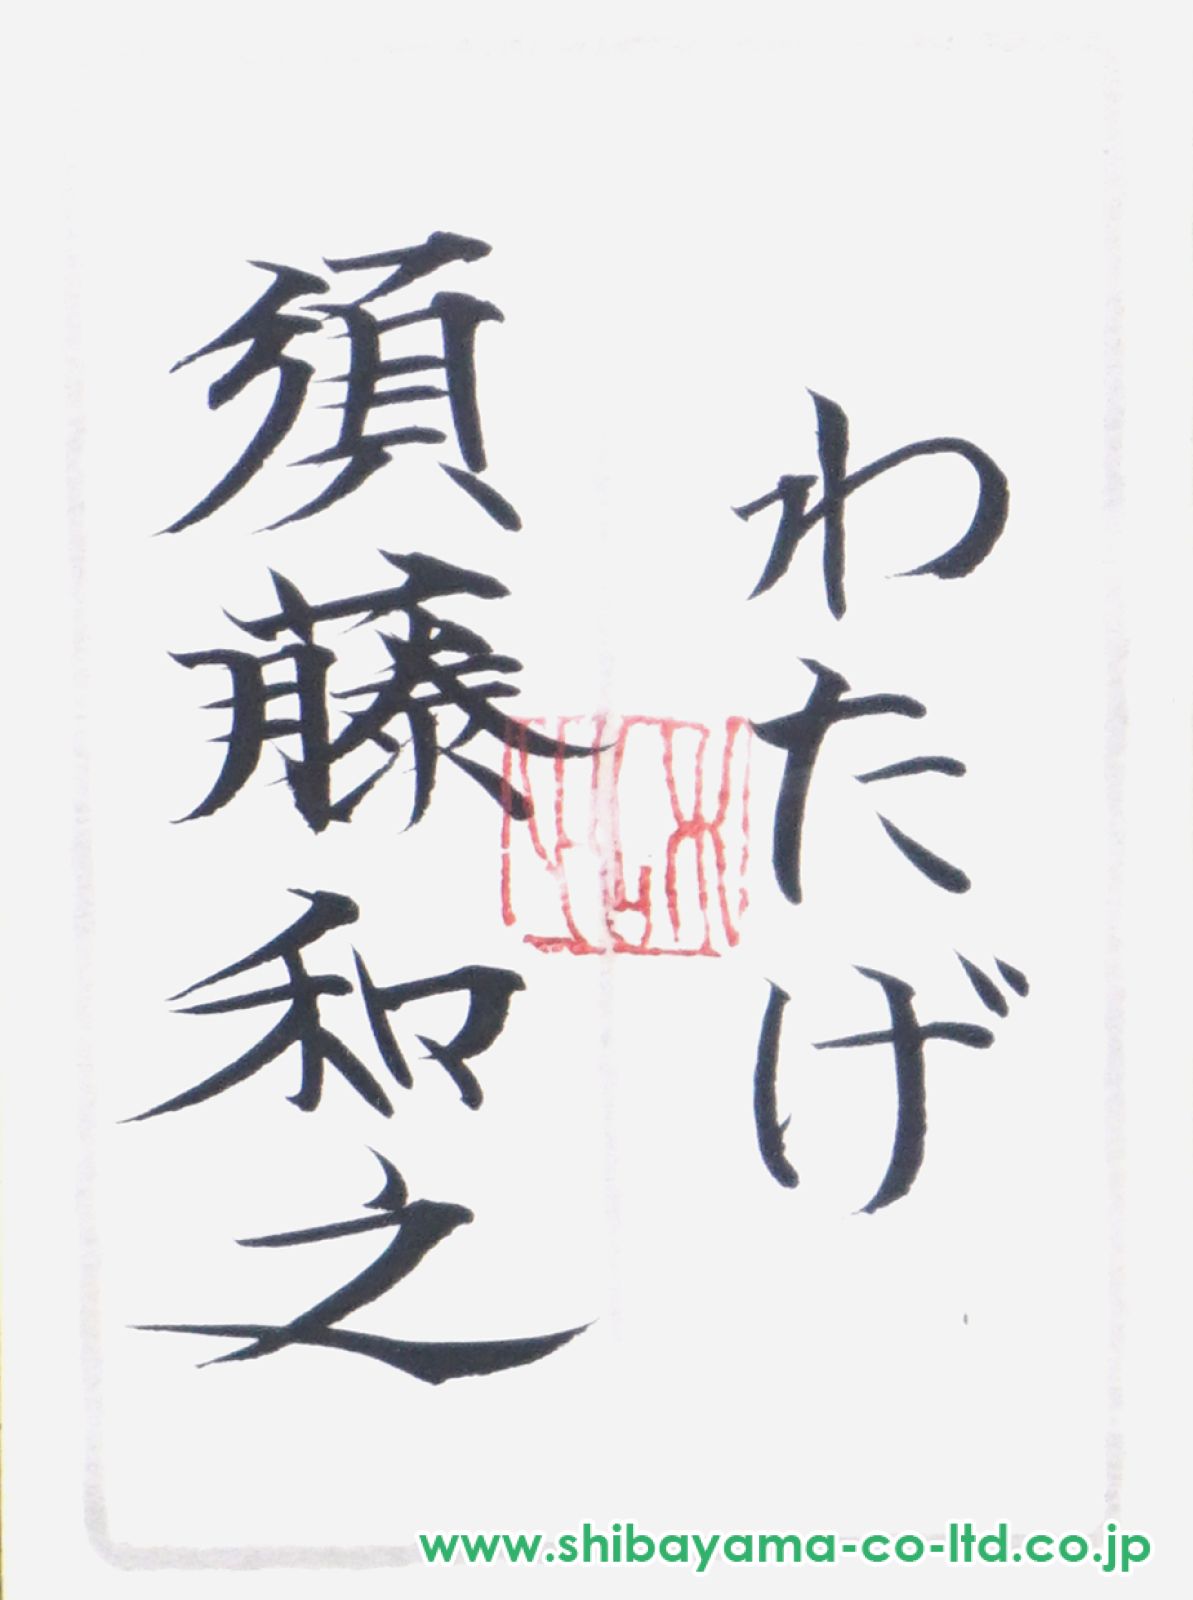 わたげ
須藤和之
www.shibayama-co-ltd.co.jp